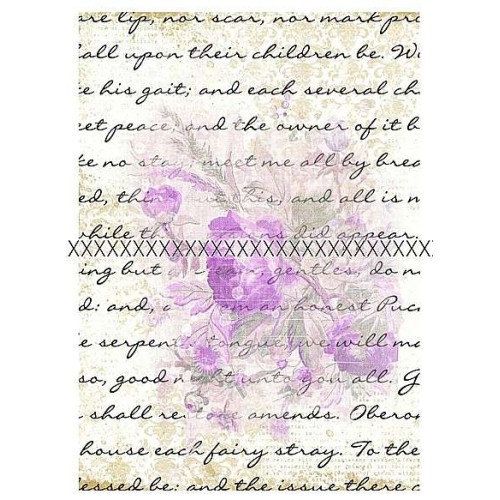 are lip, nor scar, nor mark pro
all upon their children be. W
e his gait; and each several ch
et peace; and the owner of it b
ke no stay; meet me all by brea
ed, think but this, and all is m
while these visions did appear.
XXXXXXXXXXXXXXXXXXXXXXXXXX
ing but a dream, gentles, do n
d: and, as I am an honest Puc
e serpent's tongue, we will ma
so, good night unto you all. G
s shall restore amends. Oberon
house each fairy stray. To the
essed be: and the issue there c